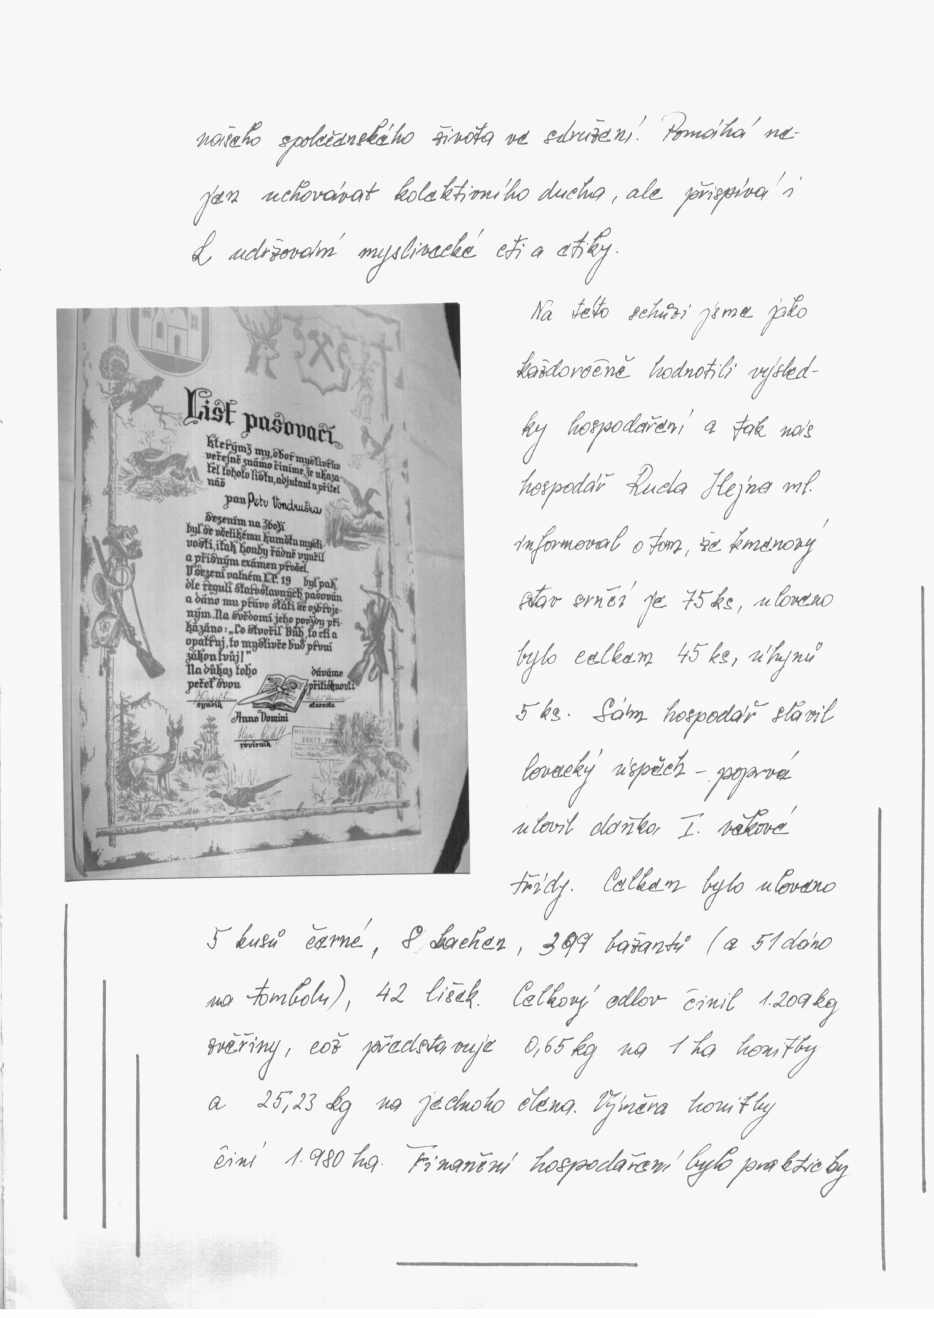 našeho společenského života ve sdružení. Pomáhá ne-
jen uchovávat kolektivního ducha, ale přispívá i
k udržování myslivecké cti a etiky.
Na této schůzi jsme jako
každoročně hodnotili výsled-
ky hospodaření a tak nás
hospodář Ruda Hejna ml.
informoval o tom, že kmenový
stav srnčí je 75 ks, uloveno
bylo celkem 45 ks, úhynů
5 ks. Sám hospodář slavil
lovecký úspěch – poprvé
ulovil daňka I. věkové
třídy. Celkem bylo uloveno
5 kusů černé, 8 kachen, 399 bažantů (a 51 dáno
na tombolu), 42 lišek. Celkový odlov činil 1.209 kg
zvěřiny, což představuje 0,65 kg na 1 ha honitby
a 25,23 kg na jednoho člena. Výměra honitby
činí 1.980 ha. Finanční hospodaření bylo prakticky
List pasovací
kterýmž my, sbor myslivců
veřejně známo činíme, že ukaza-
tel tohoto listu, adjutant a přítel
náš
pan Petr Vondruška
Sezením na zboží
byl se všelikému kumštu mysli-
vosti, i tak honby řádně vyučil
a přísným exámen prošel.
V sezení valném L.P. 19 byl pak
dle regulí staroslavných pasován
a dáno mu právo státi se ozbroje-
ným. Na svědomí jeho povždy při-
kázáno: „Co stvořil Bůh, to cti a
opatruj, to myslivče buď první
zákon tvůj!"
Na důkaz toho dáváme
pečeť svou přitisknouti
syndik starosta
Anno Domini
revírník